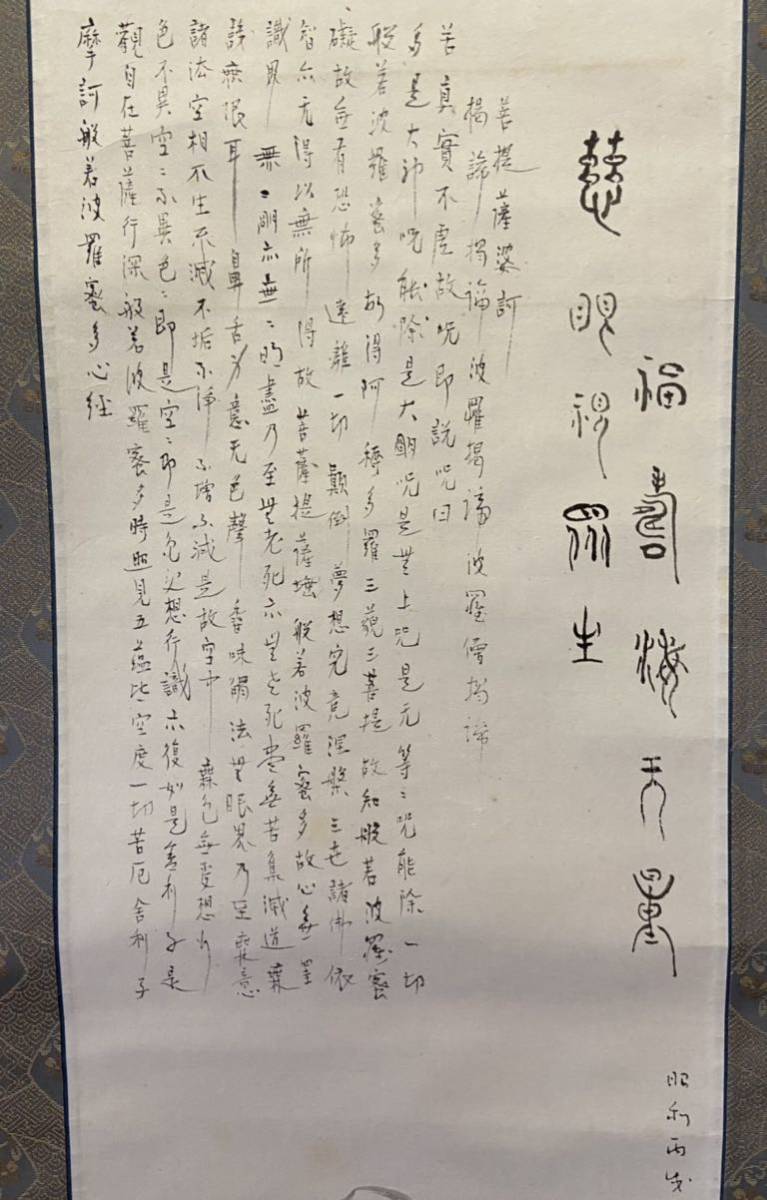 摩訶般若波羅蜜多心経
觀自在菩薩行深般若波羅蜜多時照見五蘊皆空度一切苦厄舎利子
色不異空〻不異色〻即是空〻即是色受想行識亦復如是舎利子是
諸法空相不生不滅不垢不浄不増不減是故空中無色無受想行
識無眼耳鼻舌身意无色聲香味觸法無眼界乃至無意
識界無〻明亦無〻明盡乃至無老死亦無老死盡無苦集滅道無
智亦无得以無所得故菩薩提薩埵般若波羅蜜多故心無罣
礙故無有恐怖遠離一切顛倒夢想究竟涅槃三世諸佛依
般若波羅蜜多故得阿耨多羅三藐三菩提故知般若波羅蜜
多是大神呪能除是大明呪是無上呪是无等〻呪能除一切
苦真實不虚故呪即説呪曰
揭諦揭諦波羅揭諦波羅僧揭諦
菩提薩婆訶
慈眼視衆生
福壽海无量
昭和丙戌